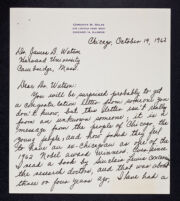 Chicago, October 19, 1962
Dr. James D. Watson
Harvard University
Cambridge, Mass.
Dear Dr. Watson:
You will be surprised probably to get
a congratulation letter from someone you
don't know, but this letter isn't really
from an unknown someone, it is a
message from the people of Chicago, the
young people, and how proud they feel
to have an ex-Chicagoan as one of the
1962 Nobel award winners. Some time
I read a book by
the research doctors, and that was about
three or four years ago, I have had a